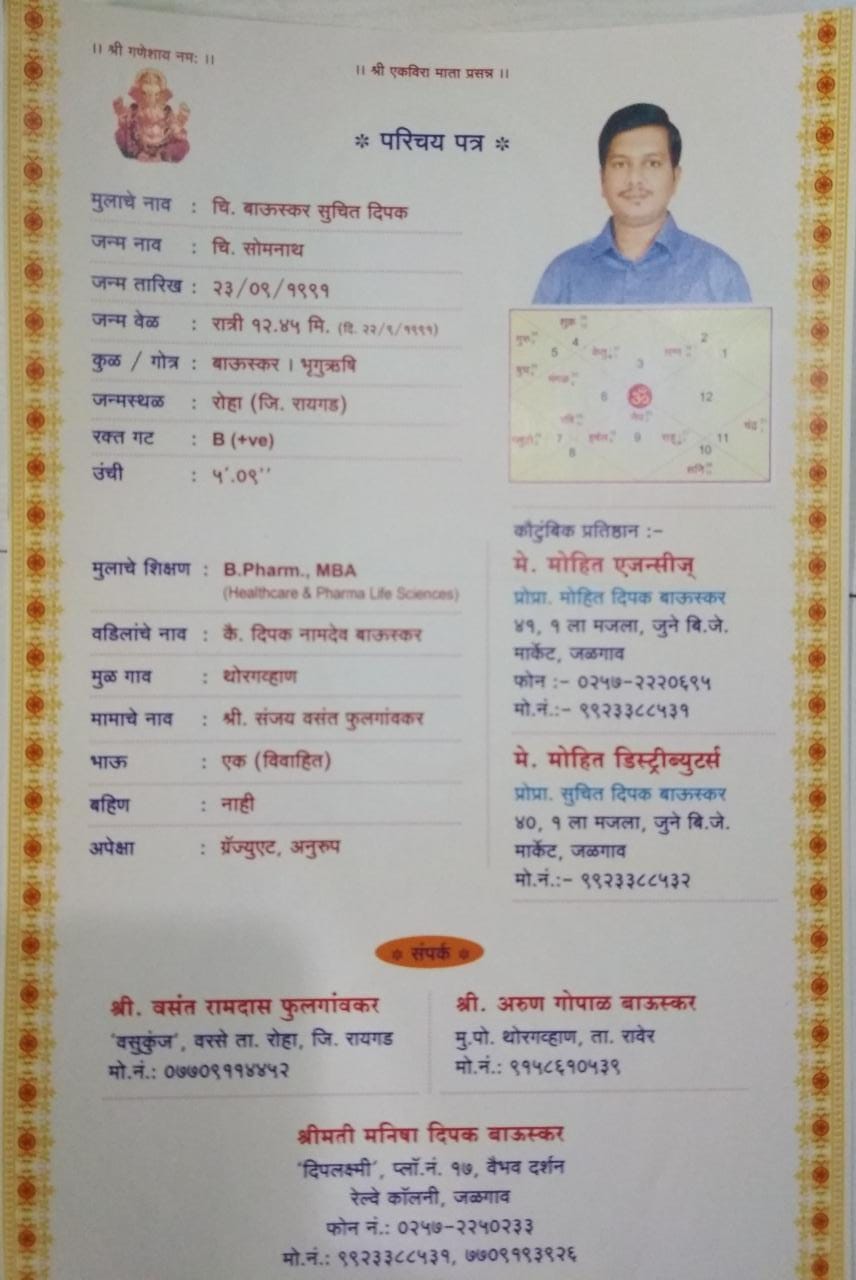 ।। श्री गणेशाय नमः ।।
।। श्री एकविरा माता प्रसन्न ।।
* परिचय पत्र *
मुलाचे नाव : चि. बाऊस्कर सुचित दिपक
जन्म नाव : चि. सोमनाथ
जन्म तारिख : २३/०९/१९९१
जन्म वेळ : रात्री १२.४५ मि. (दि. २२/९/१९९१)
कुळ / गोत्र : बाऊस्कर । भृगुऋषि
जन्मस्थळ : रोहा (जि. रायगड)
रक्त गट : B (+ve)
उंची : ५'.०९''
शुक्र
गुरु
4
5
केतु
लग्न
2
1
3
बुध
मंगळ
6
ॐ
12
रवि
नेप
चंद्र
7
हर्षल
9
राहू
11
8
10
शनि
मुलाचे शिक्षण : B.Pharm., MBA
(Healthcare & Pharma Life Sciences)
वडिलांचे नाव : कै. दिपक नामदेव बाऊस्कर
मुळ गाव : थोरगव्हाण
मामाचे नाव : श्री. संजय वसंत फुलगांवकर
भाऊ : एक (विवाहित)
बहिण : नाही
अपेक्षा : ग्रॅज्युएट, अनुरुप
कौटुंबिक प्रतिष्ठान :-
मे. मोहित एजन्सीज्
प्रोप्रा. मोहित दिपक बाऊस्कर
४१, १ ला मजला, जुने बि.जे.
मार्केट, जळगाव
फोन :- ०२५७-२२२०६९५
मो.नं.:- ९९२३३८८५३१
मे. मोहित डिस्ट्रीब्युटर्स
प्रोप्रा. सुचित दिपक बाऊस्कर
४०, १ ला मजला, जुने बि.जे.
मार्केट, जळगाव
मो.नं.:- ९९२३३८८५३२
* संपर्क *
श्री. वसंत रामदास फुलगांवकर
'वसुकुंज', वरसे ता. रोहा, जि. रायगड
मो.नं.: ०७७०९११४४५२
श्री. अरुण गोपाळ बाऊस्कर
मु.पो. थोरगव्हाण, ता. रावेर
मो.नं.: ९१५८६१०५३९
श्रीमती मनिषा दिपक बाऊस्कर
'दिपलक्ष्मी', प्लॉ.नं. १७, वैभव दर्शन
रेल्वे कॉलनी, जळगाव
फोन नं.: ०२५७-२२५०२३३
मो.नं.: ९९२३३८८५३१, ७७०९१९३९२६